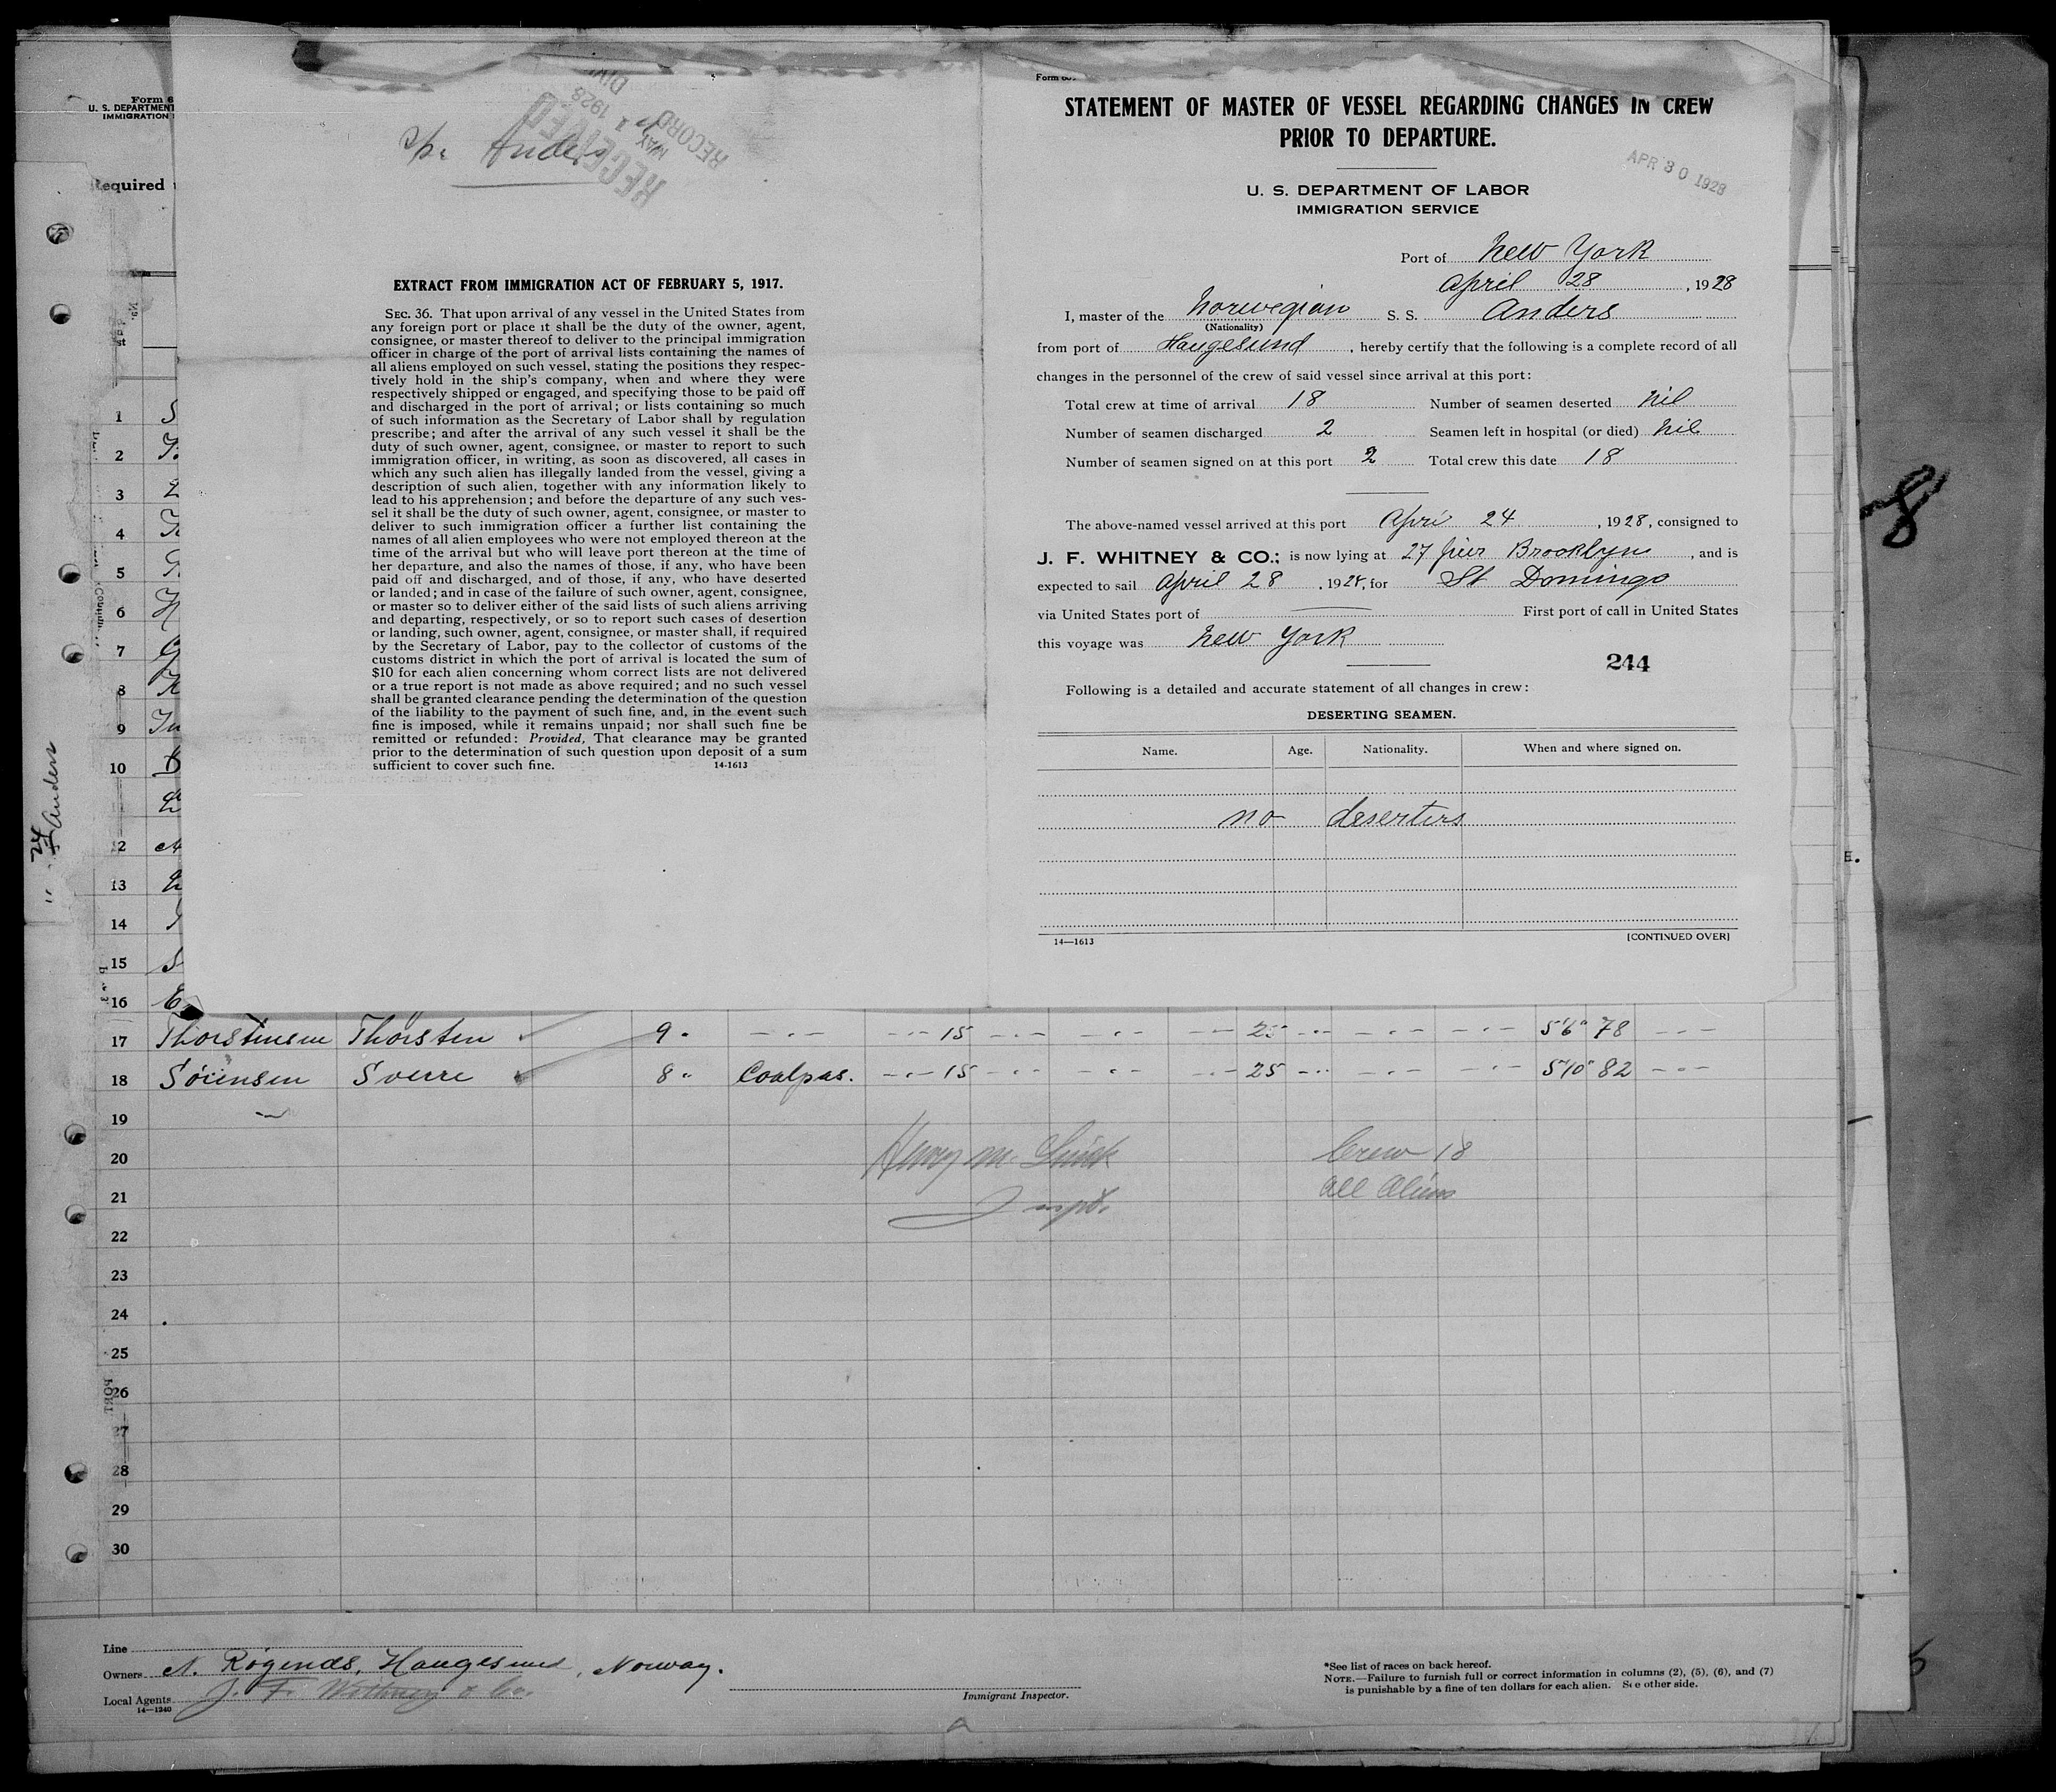 Form 6
U. S. DEPARTMENT
IMMIGRATION
Required
S/s Anders
RECEIVED
MAY 1 1928
RECORD
DIVI
EXTRACT FROM IMMIGRATION ACT OF FEBRUARY 5, 1917.
SEC. 36. That upon arrival of any vessel in the United States from
any foreign port or place it shall be the duty of the owner, agent,
consignee, or master thereof to deliver to the principal immigration
officer in charge of the port of arrival lists containing the names of
all aliens employed on such vessel, stating the positions they respec-
tively hold in the ship's company, when and where they were
respectively shipped or engaged, and specifying those to be paid off
and discharged in the port of arrival; or lists containing so much
of such information as the Secretary of Labor shall by regulation
prescribe; and after the arrival of any such vessel it shall be the
duty of such owner, agent, consignee, or master to report to such
immigration officer, in writing, as soon as discovered, all cases in
which any such alien has illegally landed from the vessel, giving a
description of such alien, together with any information likely to
lead to his apprehension; and before the departure of any such ves-
sel it shall be the duty of such owner, agent, consignee, or master to
deliver to such immigration officer a further list containing the
names of all alien employees who were not employed thereon at the
time of the arrival but who will leave port thereon at the time of
her departure, and also the names of those, if any, who have been
paid off and discharged, and of those, if any, who have deserted
or landed; and in case of the failure of such owner, agent, consignee,
or master so to deliver either of the said lists of such aliens arriving
and departing, respectively, or so to report such cases of desertion
or landing, such owner, agent, consignee, or master shall, if required
by the Secretary of Labor, pay to the collector of customs of the
customs district in which the port of arrival is located the sum of
$10 for each alien concerning whom correct lists are not delivered
or a true report is not made as above required; and no such vessel
shall be granted clearance pending the determination of the question
of the liability to the payment of such fine, and, in the event such
fine is imposed, while it remains unpaid; nor shall such fine be
remitted or refunded: Provided, That clearance may be granted
prior to the determination of such question upon deposit of a sum
sufficient to cover such fine. 14-1613
Form
STATEMENT OF MASTER OF VESSEL REGARDING CHANGES IN CREW
PRIOR TO DEPARTURE.
APR 30 1928
U. S. DEPARTMENT OF LABOR
IMMIGRATION SERVICE
Port of New York
April 28, 1928
I, master of the Norwegian S. S. Anders
(Nationality)
from port of Haugesund, hereby certify that the following is a complete record of all
changes in the personnel of the crew of said vessel since arrival at this port:
Total crew at time of arrival 18 Number of seamen deserted nil
Number of seamen discharged 2 Seamen left in hospital (or died) nil
Number of seamen signed on at this port 2 Total crew this date 18
The above-named vessel arrived at this port April 24, 1928, consigned to
J. F. WHITNEY & CO.; is now lying at 27 pier Brooklyn, and is
expected to sail April 28, 1928, for St Domingo
via United States port of First port of call in United States
this voyage was New York
244
Following is a detailed and accurate statement of all changes in crew:
DESERTING SEAMEN.
Name. Age. Nationality. When and where signed on.
no deserters
14—1613 [CONTINUED OVER]
8
24
Anders
1
2
3
4
5
6
7
8
9
10
2
13
14
15
16
17 Thorstensen Thorsten 9 " 15 25 5'6" 78
18 Sörensen Sverre 8 " Coalpas. 15 25 5'10" 82
19
20 Crew 18
21 All Aliens
Inspt.
22
23
24
25
26
27
28
29
30
Line
Owners A. Rögends, Haugesund, Norway.
Local Agents J. F. Whitney & Co.
14—1240
Immigrant Inspector.
*See list of races on back hereof.
NOTE.—Failure to furnish full or correct information in columns (2), (5), (6), and (7)
is punishable by a fine of ten dollars for each alien. See other side.